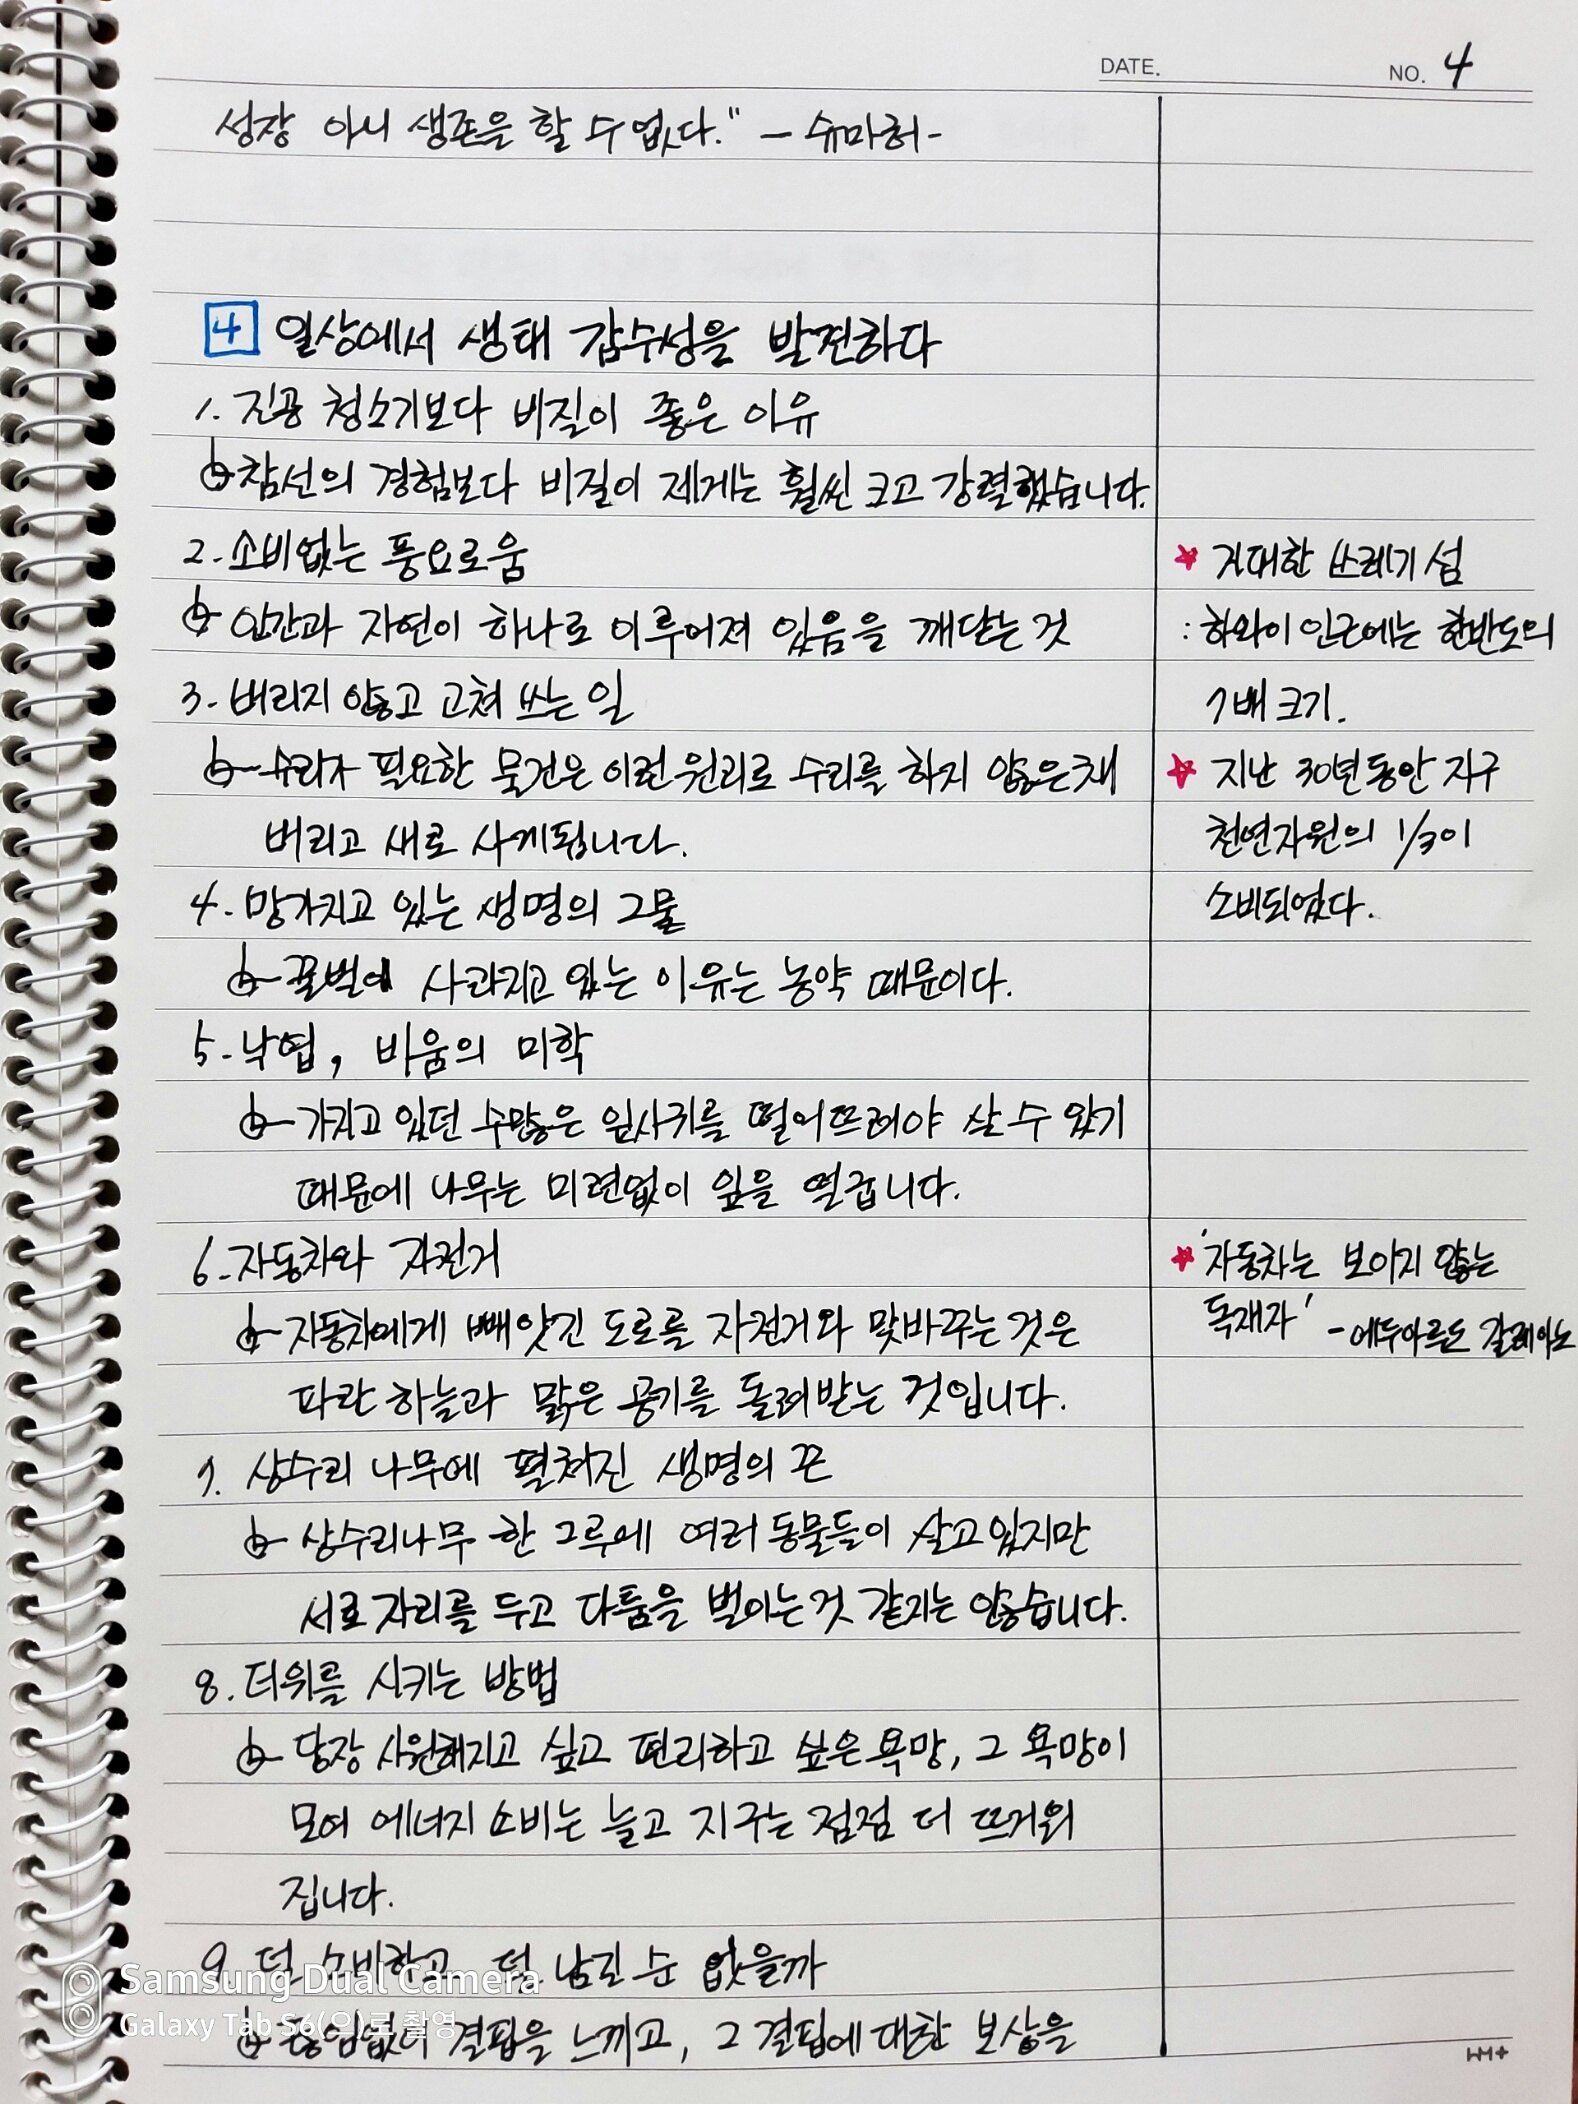 DATE.
NO. 4
성장 아니 생존을 할 수 없다." - 슈마허 -
4 일상에서 생태 감수성을 발견하다
1. 진공 청소기보다 비질이 좋은 이유
참선의 경험보다 비질이 제게는 훨씬 크고 강렬했습니다.
2. 소비없는 풍요로움
인간과 자연이 하나로 이루어져 있음을 깨닫는 것
3. 버리지 않고 고쳐 쓰는 일
수리가 필요한 물건은 이런 원리로 수리를 하지 않은채
버리고 새로 사게됩니다.
4. 망가지고 있는 생명의 그물
꿀벌이 사라지고 있는 이유는 농약 때문이다.
5. 낙엽, 비움의 미학
가지고 있던 수많은 잎사귀를 떨어뜨려야 살 수 있기
때문에 나무는 미련없이 잎을 떨굽니다.
6. 자동차와 자전거
자동차에게 빼앗긴 도로를 자전거와 맞바꾸는 것은
파란 하늘과 맑은 공기를 돌려받는 것입니다.
7. 상수리 나무에 펼쳐진 생명의 끈
상수리나무 한 그루에 여러 동물들이 살고 있지만
서로 자리를 두고 다툼을 벌이는 것 같지는 않습니다.
8. 더위를 식히는 방법
당장 시원해지고 싶고 편리하고 싶은 욕망, 그 욕망이
모여 에너지 소비는 늘고 지구는 점점 더 뜨거워
집니다.
9. 덜 소비하고 덜 남길 순 없을까
끊임없이 결핍을 느끼고, 그 결핍에 대한 보상을
★ 거대한 쓰레기 섬
: 하와이 인근에는 한반도의
7배 크기.
★ 지난 30년 동안 지구
천연자원의 1/3이
소비되었다.
★ '자동차는 보이지 않는
독재자' - 에두아르도 갈레아노
Samsung Dual Camera
Galaxy Tab S6(으)로 촬영